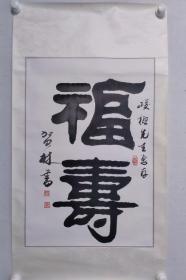 福壽
先生惠存
賀林書